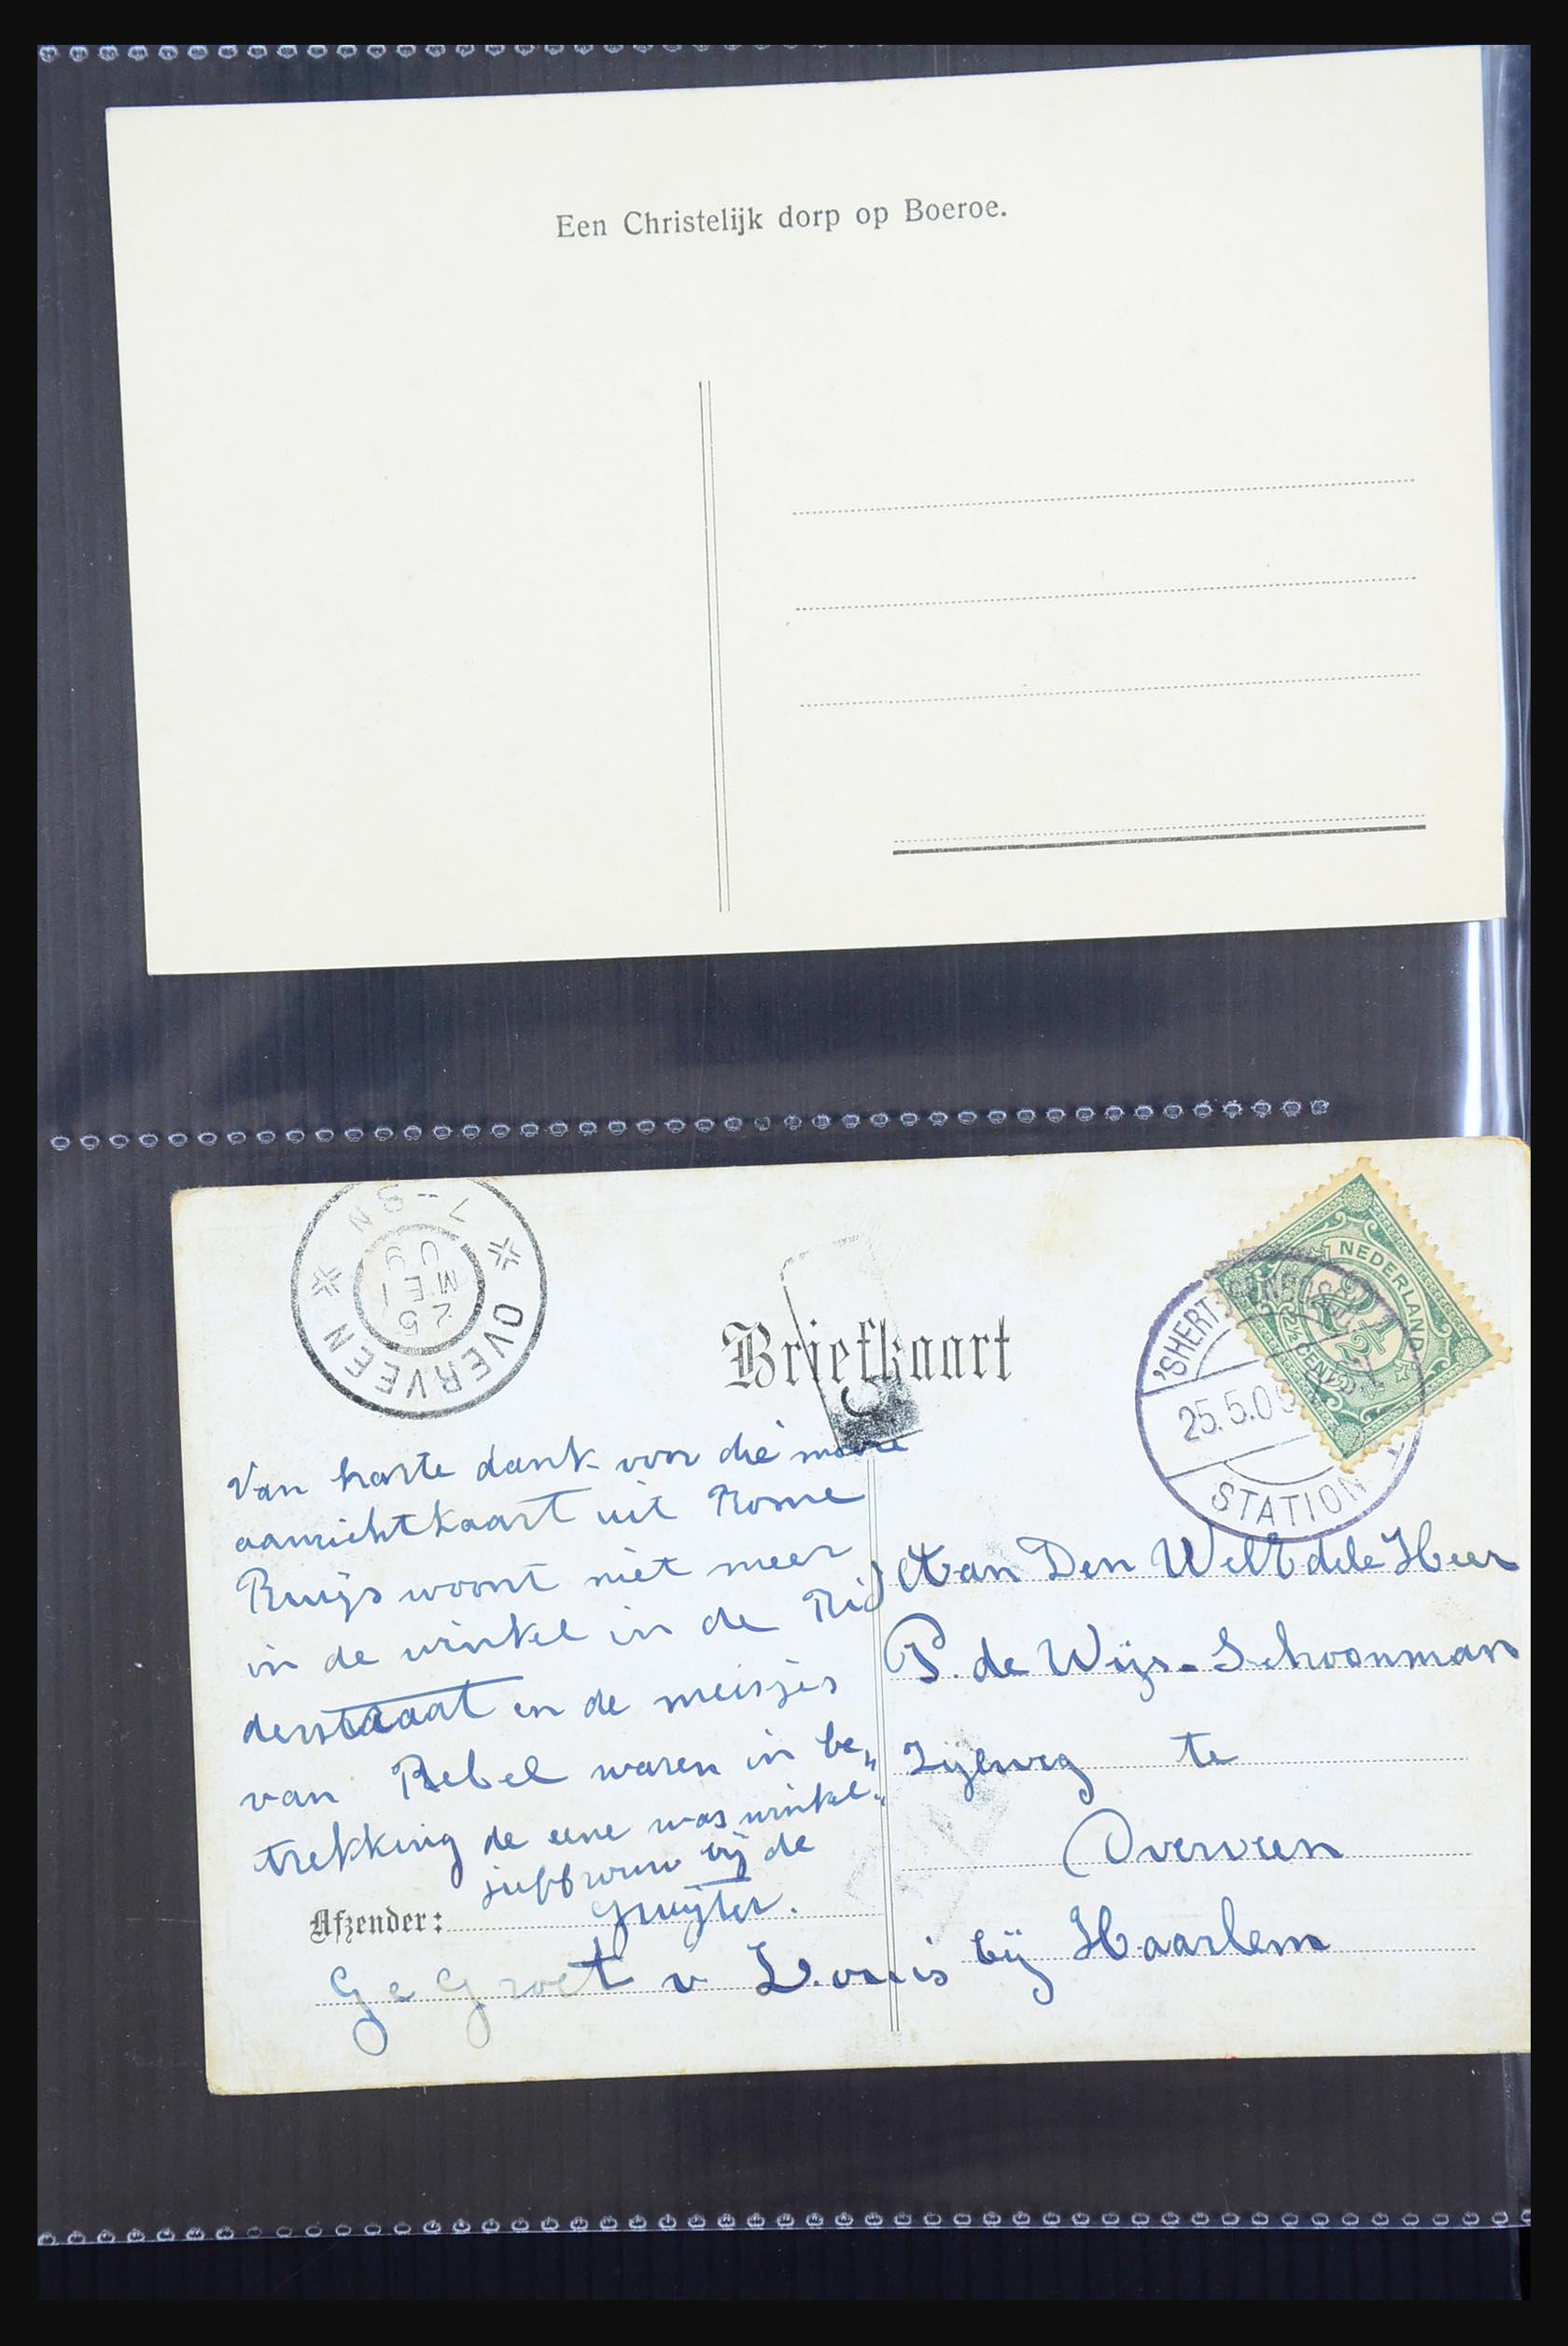 Een Christelijk dorp op Boeroe.
7-8 N
OVERVEEN
25
MEI
09
Briefkaart
NEDERLAND
2½
2½ CENT
'SHERT
25.5.0
STATION
Van harte dank voor die mooie
aanzichtkaart uit Rome
Ruijs woont niet meer
in de winkel in de Rid
derstraat en de meisjes
van Rebel waren in be„
trekking de eene was winkel„
juffrouw bij de
Gruijter.
Afzender:
Ge Groet v Louis
Aan Den WelEdele Heer
P. de Wijs-Schoonman
Zijlweg te
Overveen
bij Haarlem